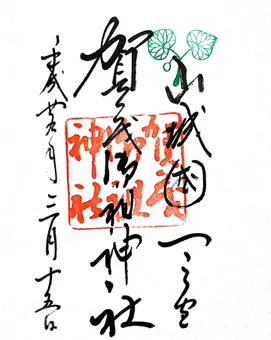 山城國一之宮
賀茂御祖神社
賀茂
御祖
神社
平成廿八年二月十五日